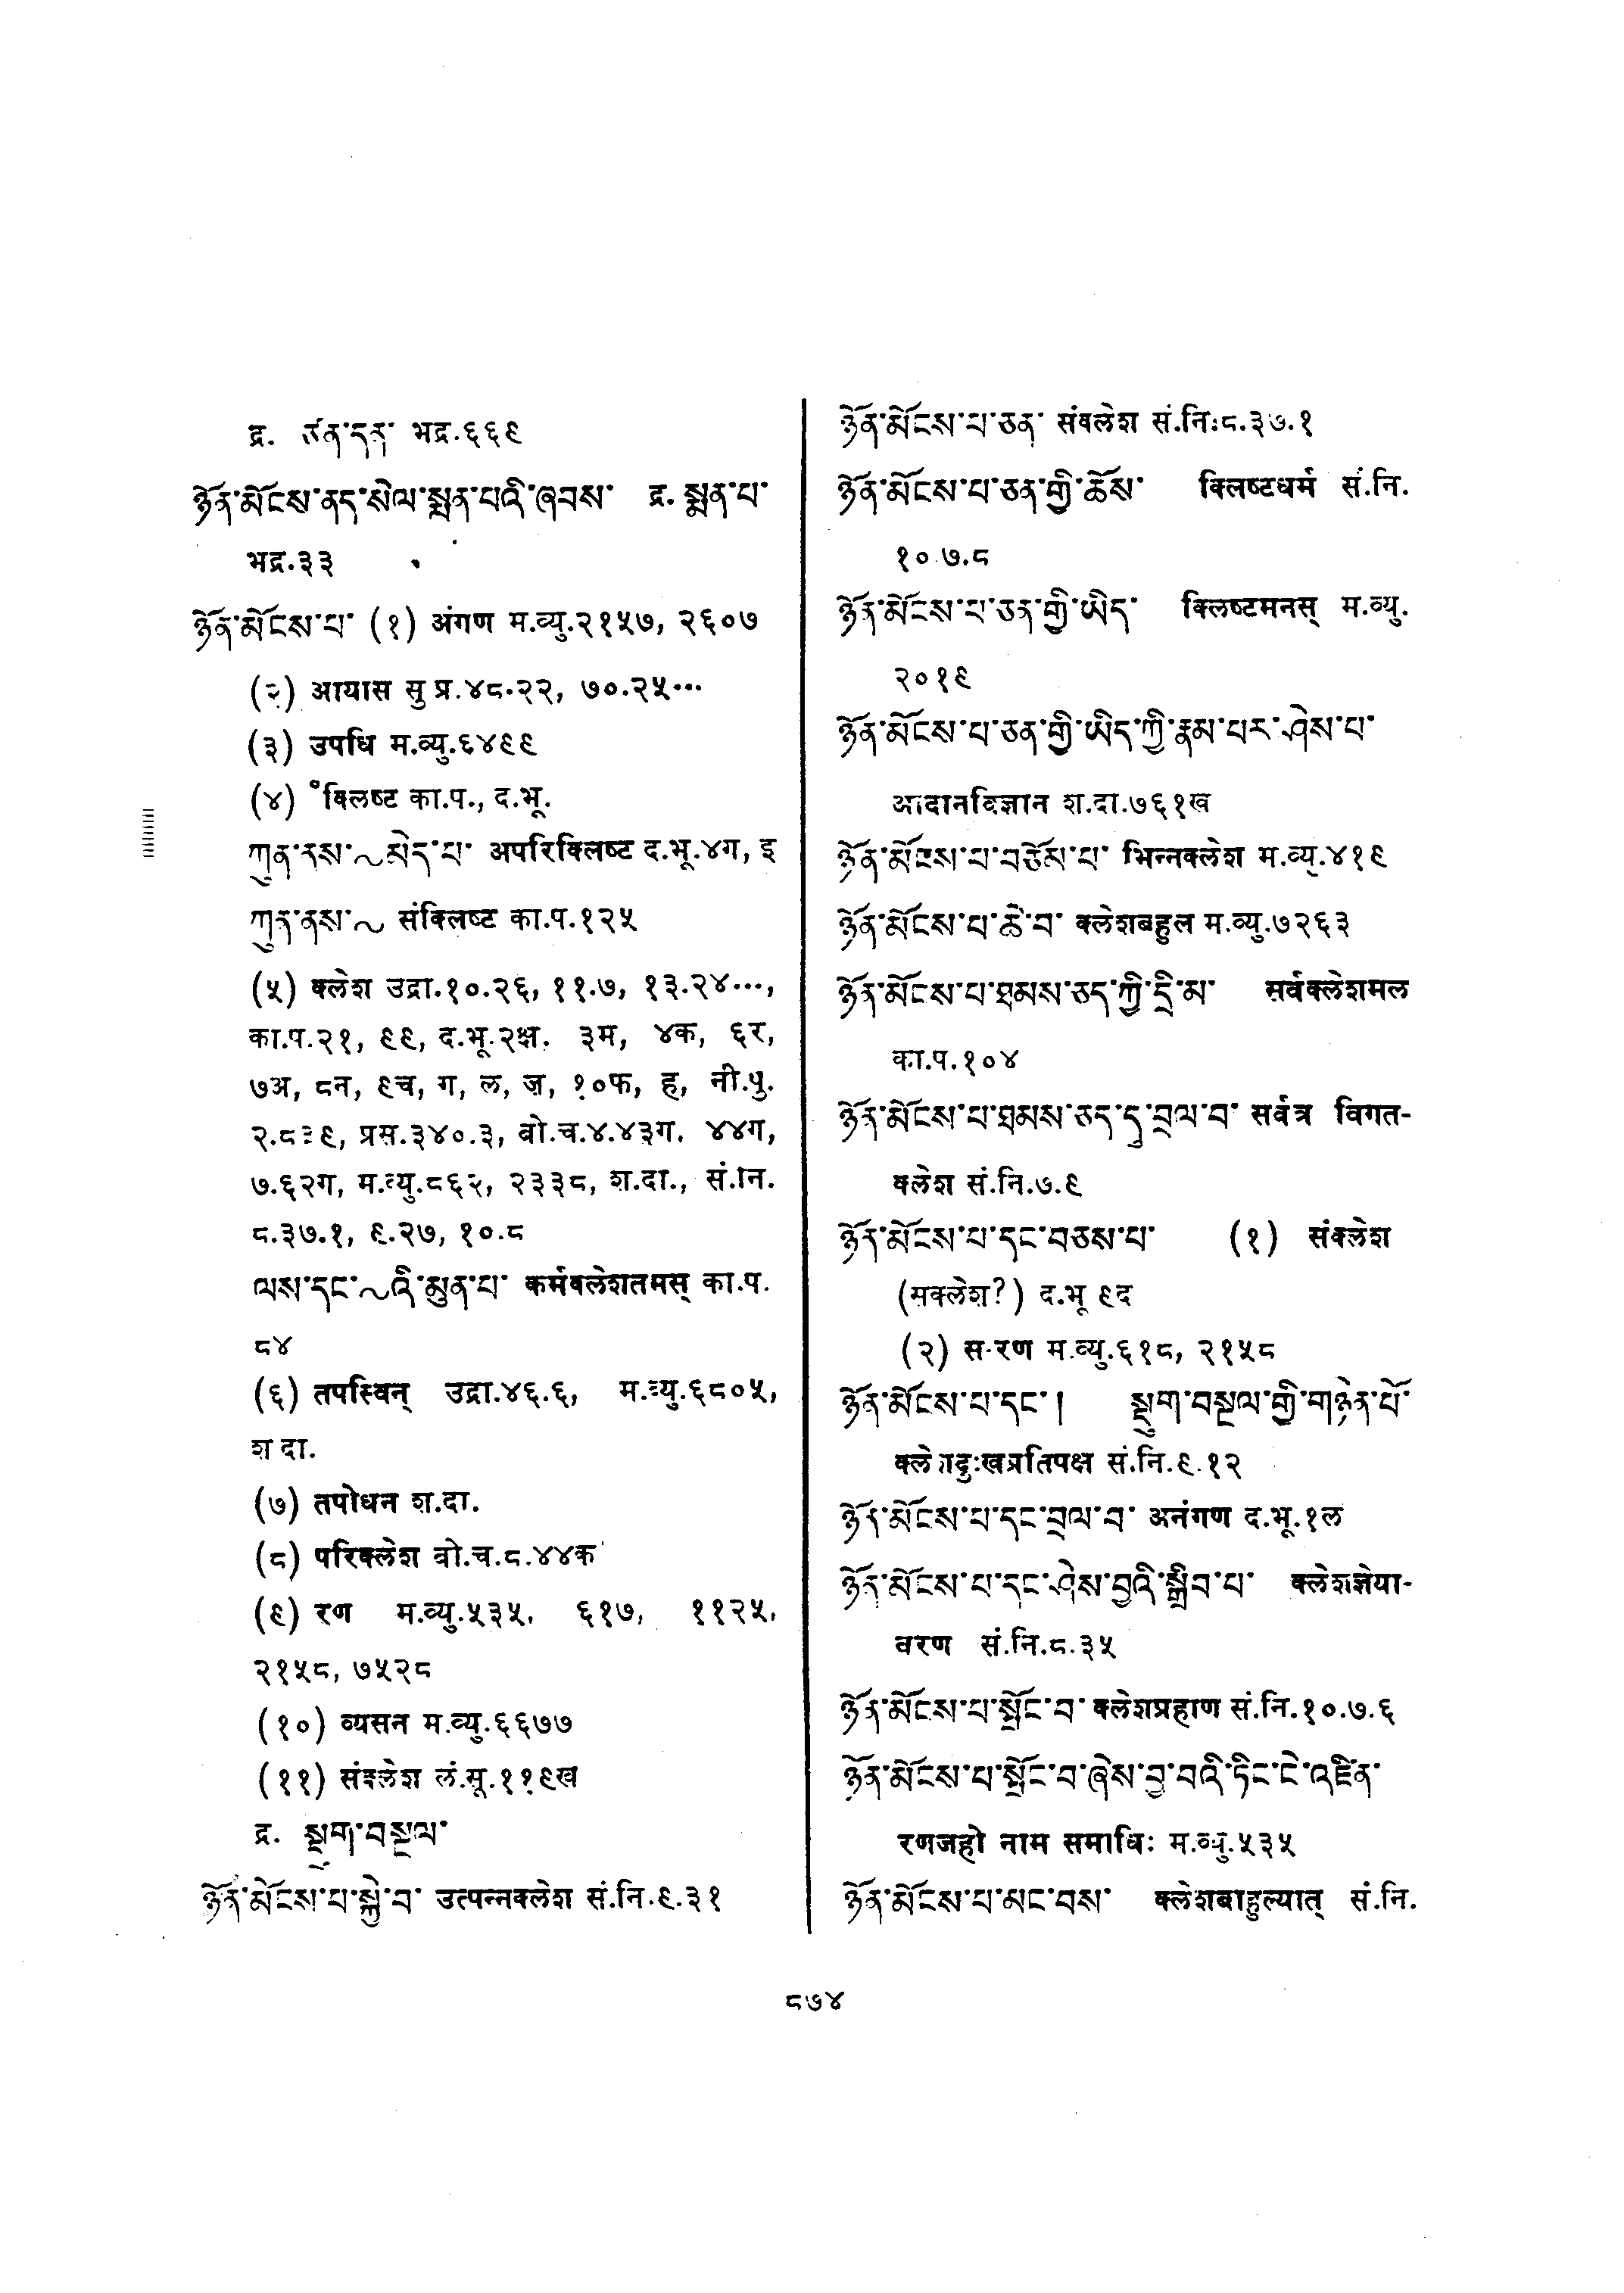 द्र. ཙན་དན་ भद्र.६६९
ཉོན་མོངས་ནད་སེལ་སྨན་པའི་ཞབས་ द्र. སྨན་པ་
भद्र.३३
ཉོན་མོངས་པ་ (१) अंगण म.व्यु.२१५७, २६०७
(२) आयास सु प्र.४८.२२, ७०.२५...
(३) उपधि म.व्यु.६४९९
(४) ॰क्लिष्ट का.प., द.भू.
ཀུན་ནས་~མེད་པ་ अपरिक्लिष्ट द.भू.४ग, इ
ཀུན་ནས་~ संक्लिष्ट का.प.१२५
(५) क्लेश उद्रा.१०.२६, ११.७, १३.२४...,
का.प.२१, ९९, द.भू.२क्ष. ३म, ४क, ६र,
७अ, ८न, ९च, ग, ल, ज़, १०फ, ह, नी.पु.
प्रस.३४०.३, बो.च.४.४३ग. ४४ग,
७.६२ग, म.व्यु.८६२, २३३८, श.दा., सं.नि.
८.३७.१, ९.२७, १०.८
ལས་དང་~འི་མུན་པ་ कर्मक्लेशतमस् का.प.
८४
(६) तपस्विन् उद्रा.४६.६, म.व्यु.६८०५,
श दा.
(७) तपोधन श.दा.
(८) परिक्लेश बो.च.८.४४क
(९) रण म.व्यु.५३५, ६१७, ११२५,
२१५८, ७५२८
(१०) व्यसन म.व्यु.६६७७
(११) संक्लेश लं.सू.११९ख
द्र. སྡུག་བསྔལ་
ཉོན་མོངས་པ་སྐྱེ་བ་ उत्पन्नक्लेश सं.नि.९.३१
ཉོན་མོངས་པ་ཅན་ संक्लेश सं.नि:८.३७.१
ཉོན་མོངས་པ་ཅན་གྱི་ཆོས་ क्लिष्टधर्म सं.नि.
१०.७.८
ཉོན་མོངས་པ་ཅན་གྱི་ཡིད་ क्लिष्टमनस् म.व्यु.
२०१९
ཉོན་མོངས་པ་ཅན་གྱི་ཡིད་ཀྱི་རྣམ་པར་ཤེས་པ་
आदानविज्ञान श.दा.७६१ख
ཉོན་མོངས་པ་བཅོམ་པ་ भिन्नक्लेश म.व्यु.४१९
ཉོན་མོངས་པ་ཆེ་བ་ क्लेशबहुल म.व्यु.७२६३
ཉོན་མོངས་པ་ཐམས་ཅད་ཀྱི་དྲི་མ་ सर्वक्लेशमल
का.प.१०४
ཉོན་མོངས་པ་ཐམས་ཅད་དུ་བྲལ་བ་ सर्वत्र विगत-
क्लेश सं.नि.७.९
ཉོན་མོངས་པ་དང་བཅས་པ་ (१) संक्लेश
(सक्लेश?) द.भू ९द
(२) स-रण म.व्यु.६१८, २१५८
ཉོན་མོངས་པ་དང་། སྡུག་བསྔལ་གྱི་གཉེན་པོ་
क्लेशदुःखप्रतिपक्ष सं.नि.९.१२
ཉོན་མོངས་པ་དང་བྲལ་བ་ अनंगण द.भू.१ल
ཉོན་མོངས་པ་དང་ཤེས་བྱའི་སྒྲིབ་པ་ क्लेशज्ञेया-
वरण सं.नि.८.३५
ཉོན་མོངས་པ་སྤོང་བ་ क्लेशप्रहाण सं.नि.१०.७.६
ཉོན་མོངས་པ་སྤོང་བ་ཞེས་བྱ་བའི་ཏིང་ངེ་འཛིན་
रणजहो नाम समाधिः म.व्यु.५३५
ཉོན་མོངས་པ་མང་བས་ क्लेशबाहुल्यात् सं.नि.
८७४